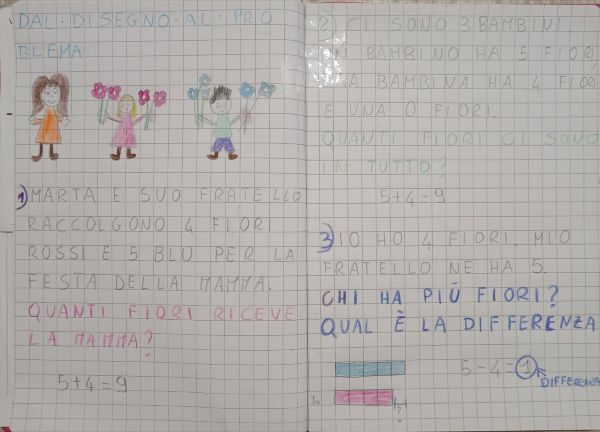 DAL·DISEGNO·AL·PRO
BLEMA
1) MARTA E SUO FRATELLO
RACCOLGONO 4 FIORI
ROSSI E 5 BLU PER LA
FESTA DELLA MAMMA.
QUANTI FIORI RICEVE
LA MAMMA?
5+4=9
2) CI SONO 3 BAMBINI.
UN BAMBINO HA 5 FIORI,
UNA BAMBINA HA 4 FIORI
E UNA 0 FIORI.
QUANTI FIORI CI SONO
IN TUTTO?
5+4=9
3) IO HO 4 FIORI. MIO
FRATELLO NE HA 5.
CHI HA PIÙ FIORI?
QUAL È LA DIFFERENZA
5-4=1
DIFFERENZA
?